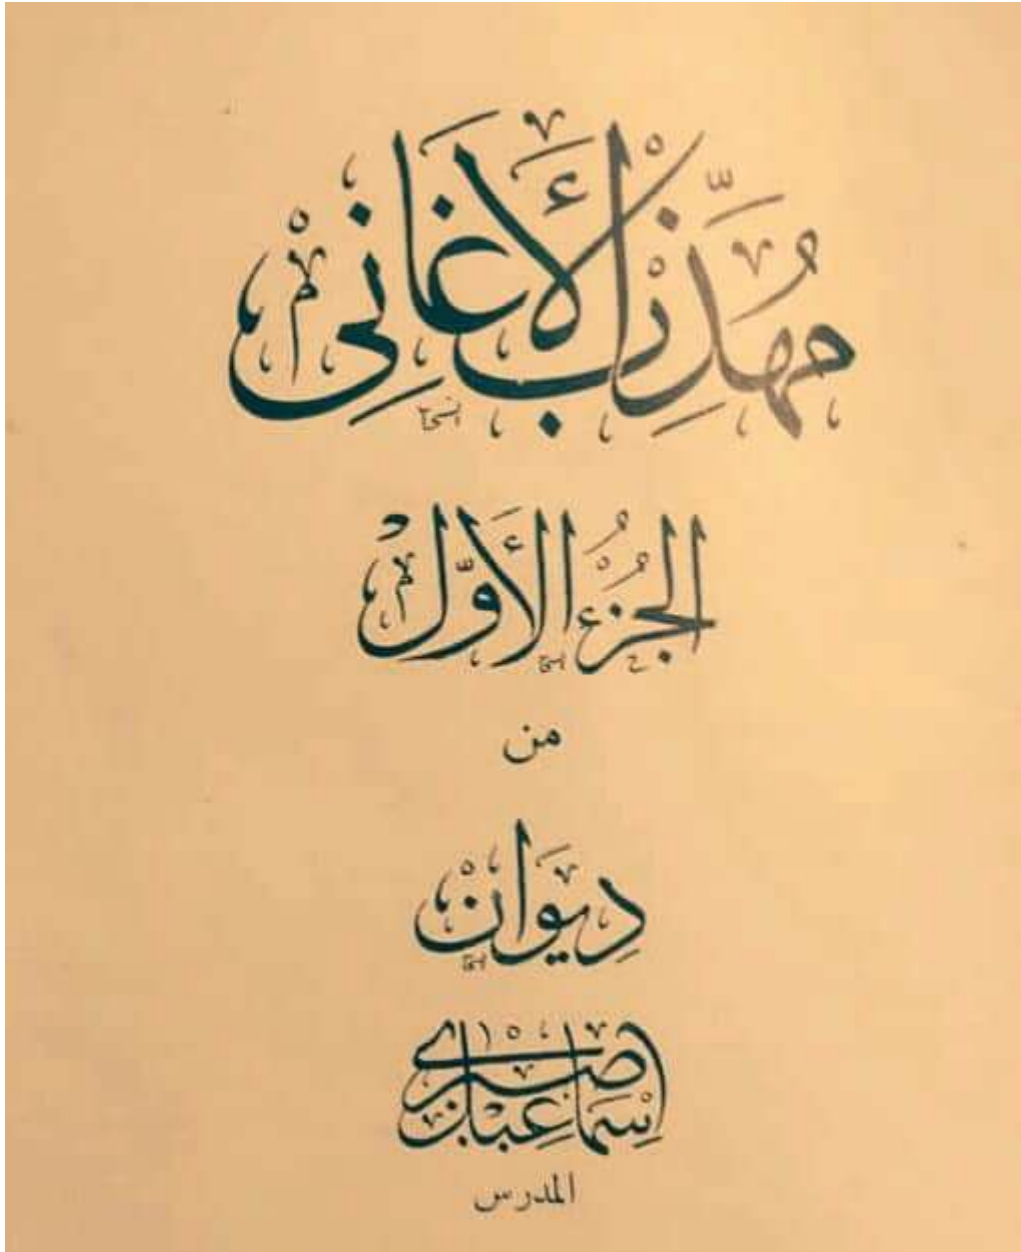 مُهَذَّبُ الْأَغَانِي
الْجُزْءُ الْأَوَّل
من
دِيوَان
إسماعيل صبرى
المدرس